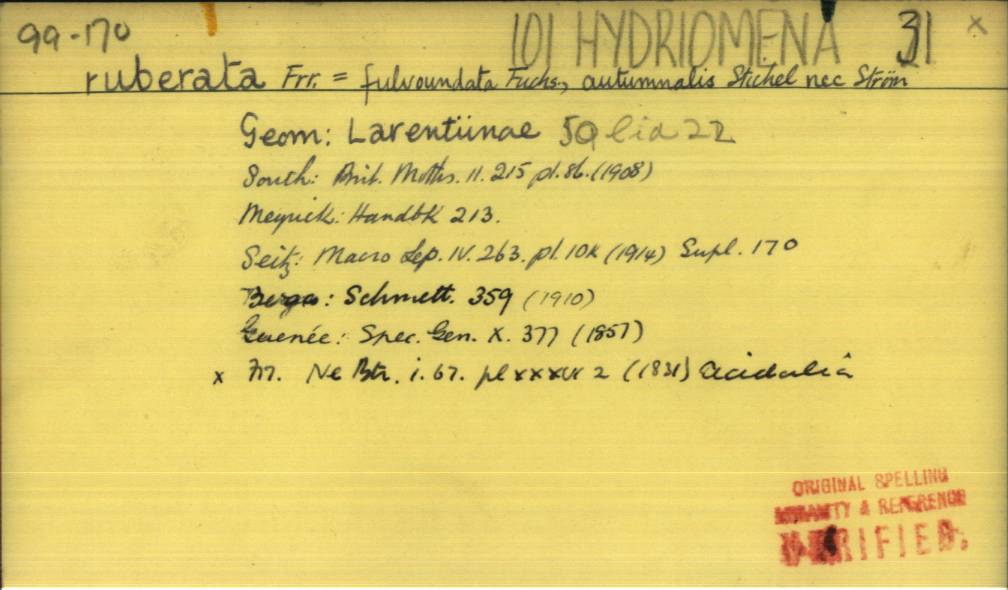 99-170 101 HYDRIOMENA 31 x
ruberata Frr. = fulvoundata Fuchs, autumnalis Stichel nec Ström
Geom: Larentiinae 5Q 22
South: Brit. Moths. II. 215 pl. 86. (1908)
Meyrick: Handbk 213.
Seitz: Macro Lep. IV. 263. pl. 10k (1914) Supl. 170
Berge: Schmett. 359 (1910)
Guenée: Spec. Gen. X. 377 (1857)
x Frr. Ne Btr. i. 67. pl 2 (1831) Acidalia
ORIGINAL SPELLING
& REFERENCE
VERIFIED.